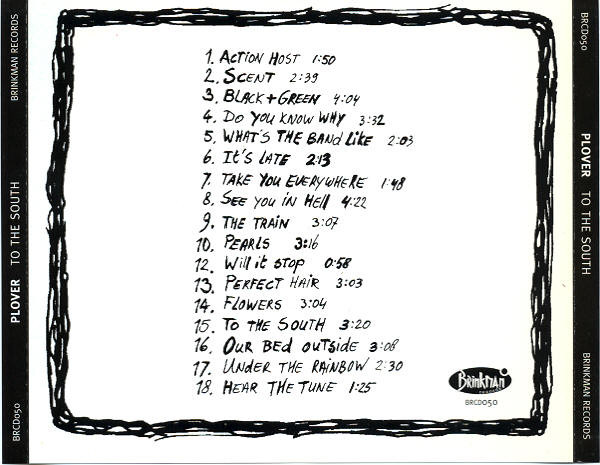 BRINKMAN RECORDS
PLOVER TO THE SOUTH
BRCD050
1. ACTION HOST 1:50
2. SCENT 2:39
3. BLACK+GREEN 4:04
4. DO YOU KNOW WHY 3:32
5. WHAT'S THE BAND LIKE 2:03
6. IT'S LATE 2:13
7. TAKE YOU EVERYWHERE 1:48
8. SEE YOU IN HELL 4:22
9. THE TRAIN 3:07
10. PEARLS 3:16
12. Will it STOP 0:58
13. PERFECT HAIR 3:03
14. FLOWERS 3:04
15. TO THE SOUTH 3:20
16. OUR BED OUTSIDE 3:08
17. UNDER THE RAINBOW 2:30
18. HEAR THE TUNE 1:25
Brinkman
BRCD050
BRCD050
PLOVER TO THE SOUTH
BRINKMAN RECORDS